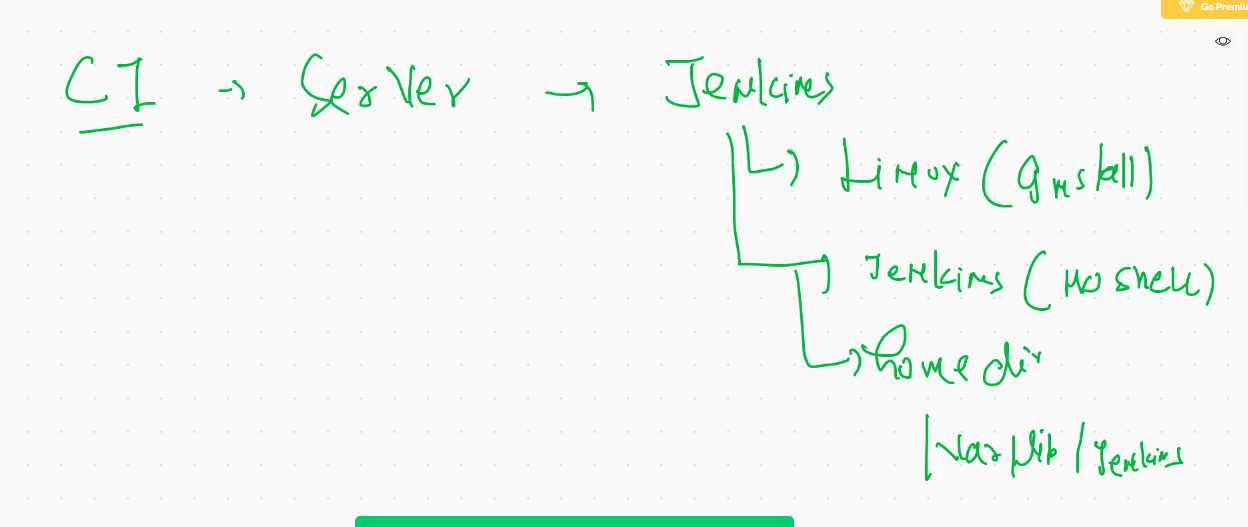 Go Premiu
CI → Server → Jenkins
Linux (Install)
Jenkins (No shell)
home dir
/var/lib/Jenkins